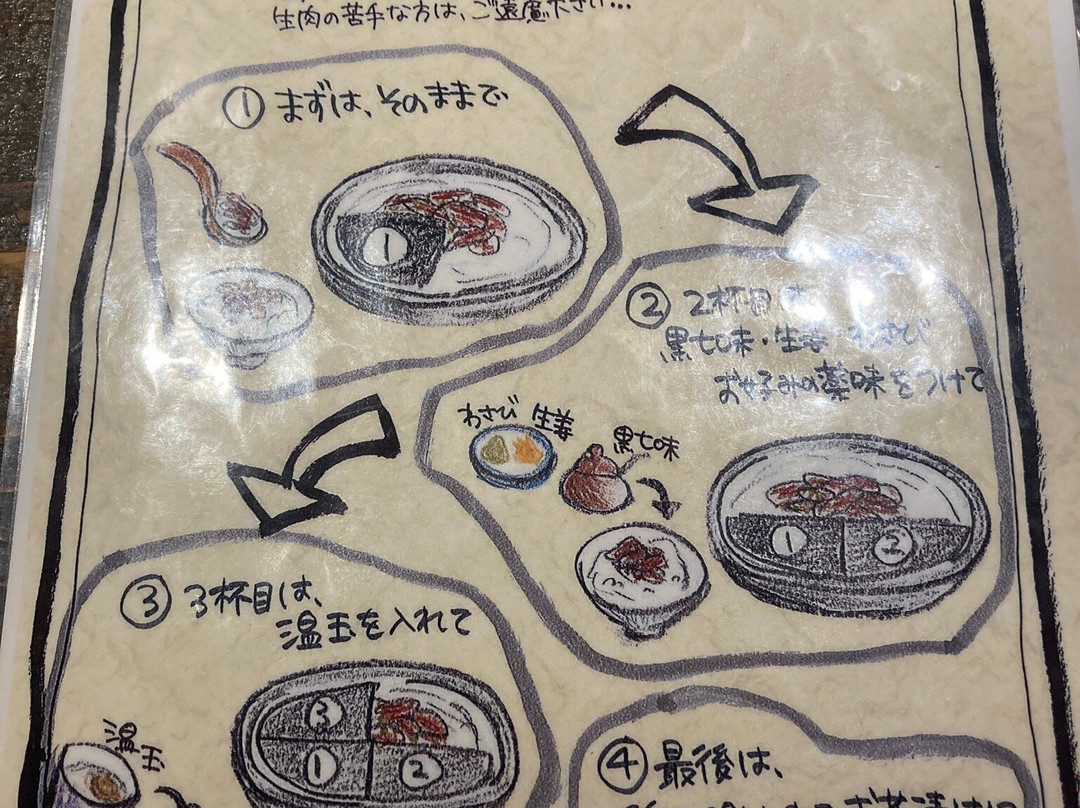 生肉の苦手な方は、ご遠慮下さい...
① まずは、そのままで
1
② 2杯目は
黒七味・生姜・わさび
お好みの薬味をつけて
わさび 生姜
黒七味
1 2
③ 3杯目は、
温玉を入れて
3
1 2
温玉
④ 最後は、